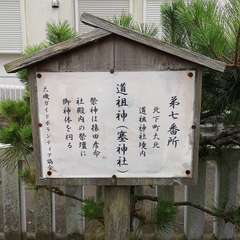 第七番所
北下町大北
道祖神社境内
道祖神(塞神社)
祭神は猿田彦命
社殿内の祭壇に
御神体を祀る
大磯ガイドボランティア協会